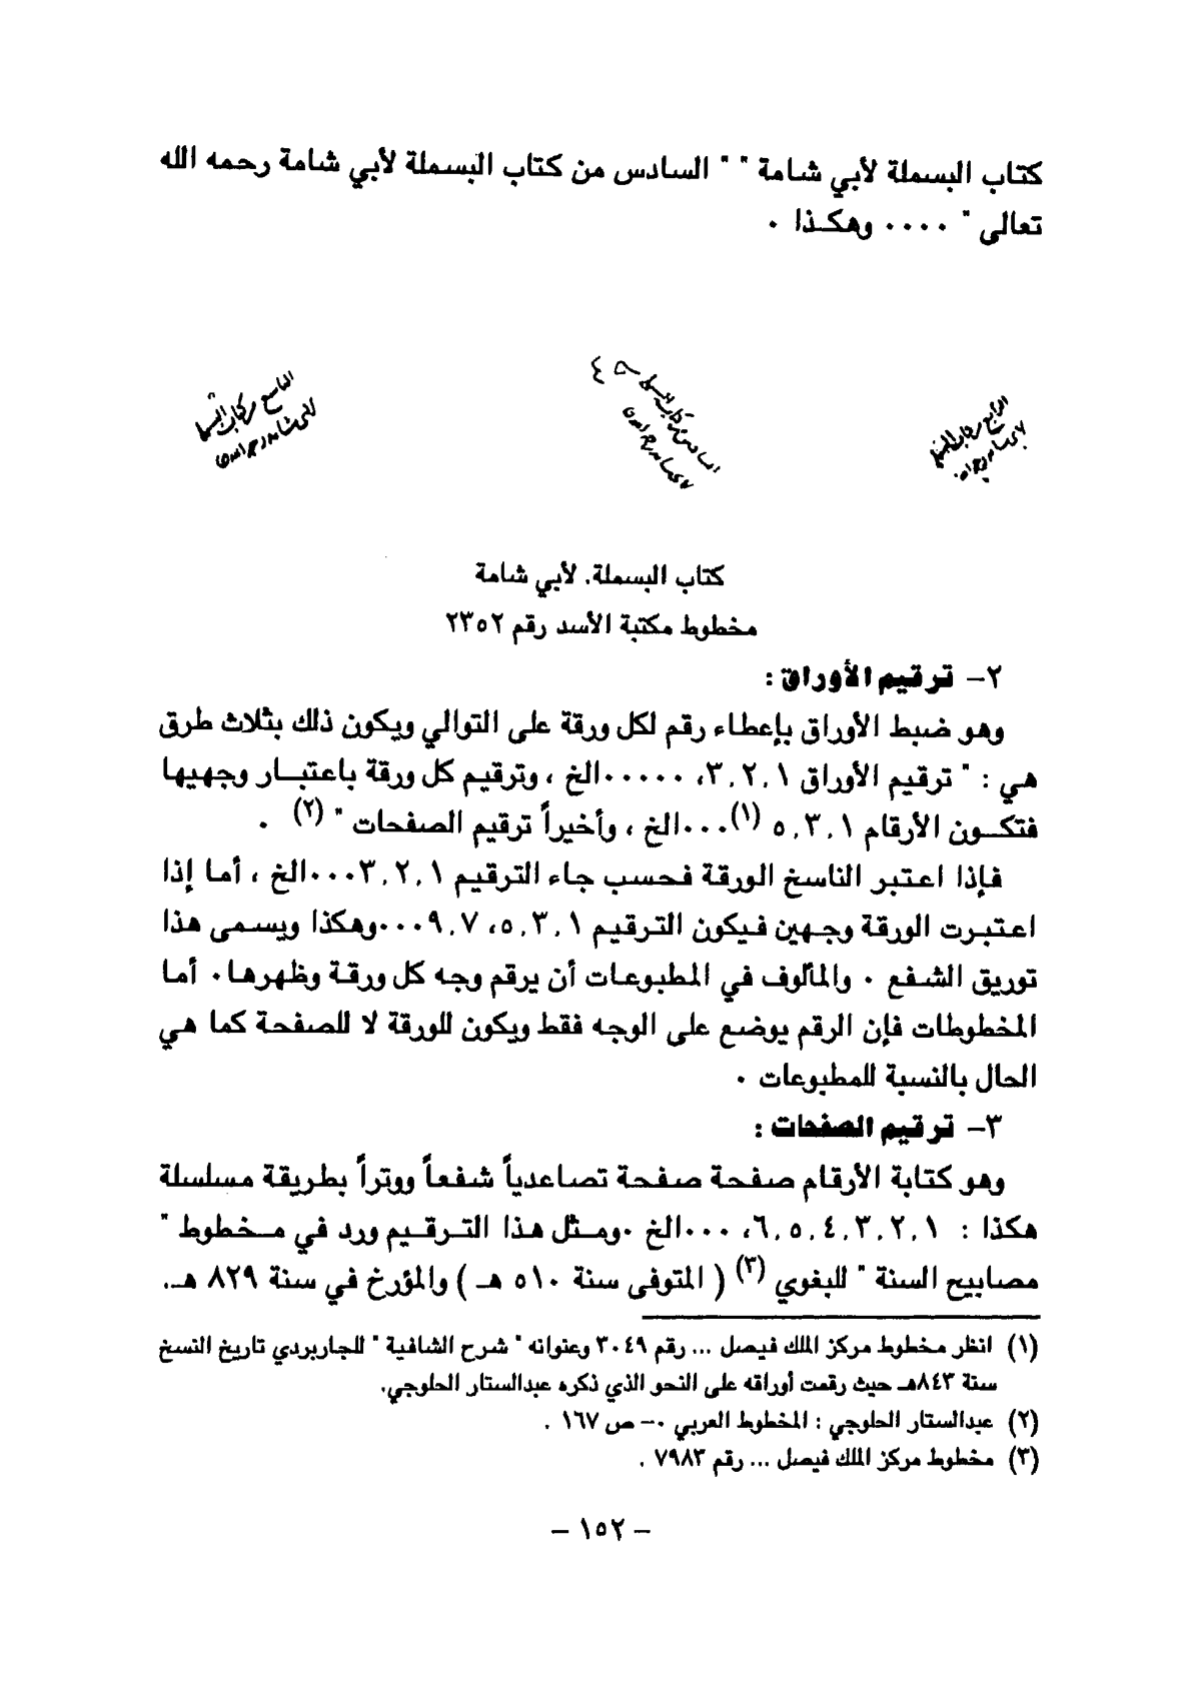 كتاب البسملة لأبي شامة " " السادس من كتاب البسملة لأبي شامة رحمه الله
تعالى " ٠٠٠٠ وهكذا ٠
الرابع من كتاب البسملة
لأبي شامه رحمه الله
٤
السادس من كتاب البسملة
لأبي شامه رحمه الله
التاسع من كتاب البسملة
لأبي شامه رحمه الله
كتاب البسملة. لأبي شامة
مخطوط مكتبة الأسد رقم ٢٣٥٢
٢- ترقيم الأوراق :
وهو ضبط الأوراق بإعطاء رقم لكل ورقة على التوالي ويكون ذلك بثلاث طرق
هي : " ترقيم الأوراق ١, ٢, ٣، ٠٠٠٠٠الخ ، وترقيم كل ورقة باعتبار وجهيها
فتكون الأرقام ١, ٣, ٥ (١)٠٠٠الخ ، وأخيراً ترقيم الصفحات " (٢) .
فإذا اعتبر الناسخ الورقة فحسب جاء الترقيم ١, ٢, ٣٠٠٠الخ ، أما إذا
اعتبرت الورقة وجهين فيكون الترقيم ١, ٣, ٥، ٧, ٩٠٠٠وهكذا ويسمى هذا
توريق الشفع ٠ والمألوف في المطبوعات أن يرقم وجه كل ورقة وظهرها٠ أما
المخطوطات فإن الرقم يوضع على الوجه فقط ويكون للورقة لا للصفحة كما هي
الحال بالنسبة للمطبوعات ٠
٣- ترقيم الصفحات :
وهو كتابة الأرقام صفحة صفحة تصاعدياً شفعاً ووتراً بطريقة مسلسلة
هكذا : ١, ٢, ٣, ٤, ٥, ٦، ٠٠٠الخ ٠ومثل هذا الترقيم ورد في مخطوط "
مصابيح السنة " للبغوي (٣) ( المتوفى سنة ٥١٠ هـ ) والمؤرخ في سنة ٨٢٩ هـ.
(١) انظر مخطوط مركز الملك فيصل ... رقم ٣٠٤٩ وعنوانه " شرح الشافية " للجاربردي تاريخ النسخ
سنة ٨٤٣هـ حيث رقمت أوراقه على النحو الذي ذكره عبدالستار الحلوجي.
(٢) عبدالستار الحلوجي : المخطوط العربي ٠- ص ١٦٧ .
(٣) مخطوط مركز الملك فيصل ... رقم ٧٩٨٣ .
- ١٥٢ -